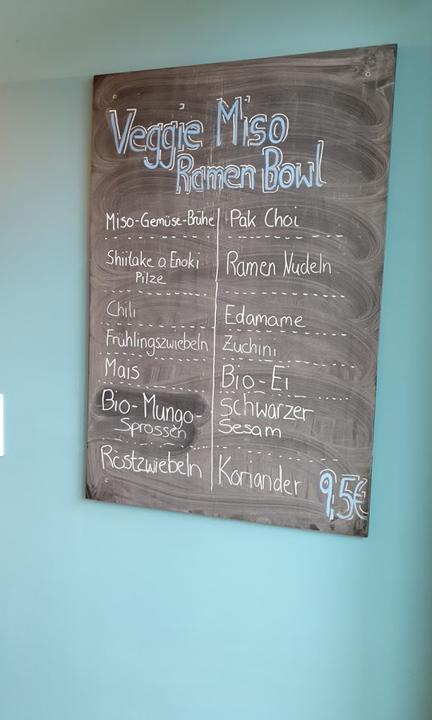 Veggie Miso
Ramen Bowl
Miso-Gemüse-Brühe
Shiitake o Enoki
Pilze
Chili
Frühlingszwiebeln
Mais
Bio-Mungo-
Sprossen
Röstzwiebeln
Pak Choi
Ramen Nudeln
Edamame
Zuchini
Bio-Ei
Schwarzer
Sesam
Koriander
9,5€